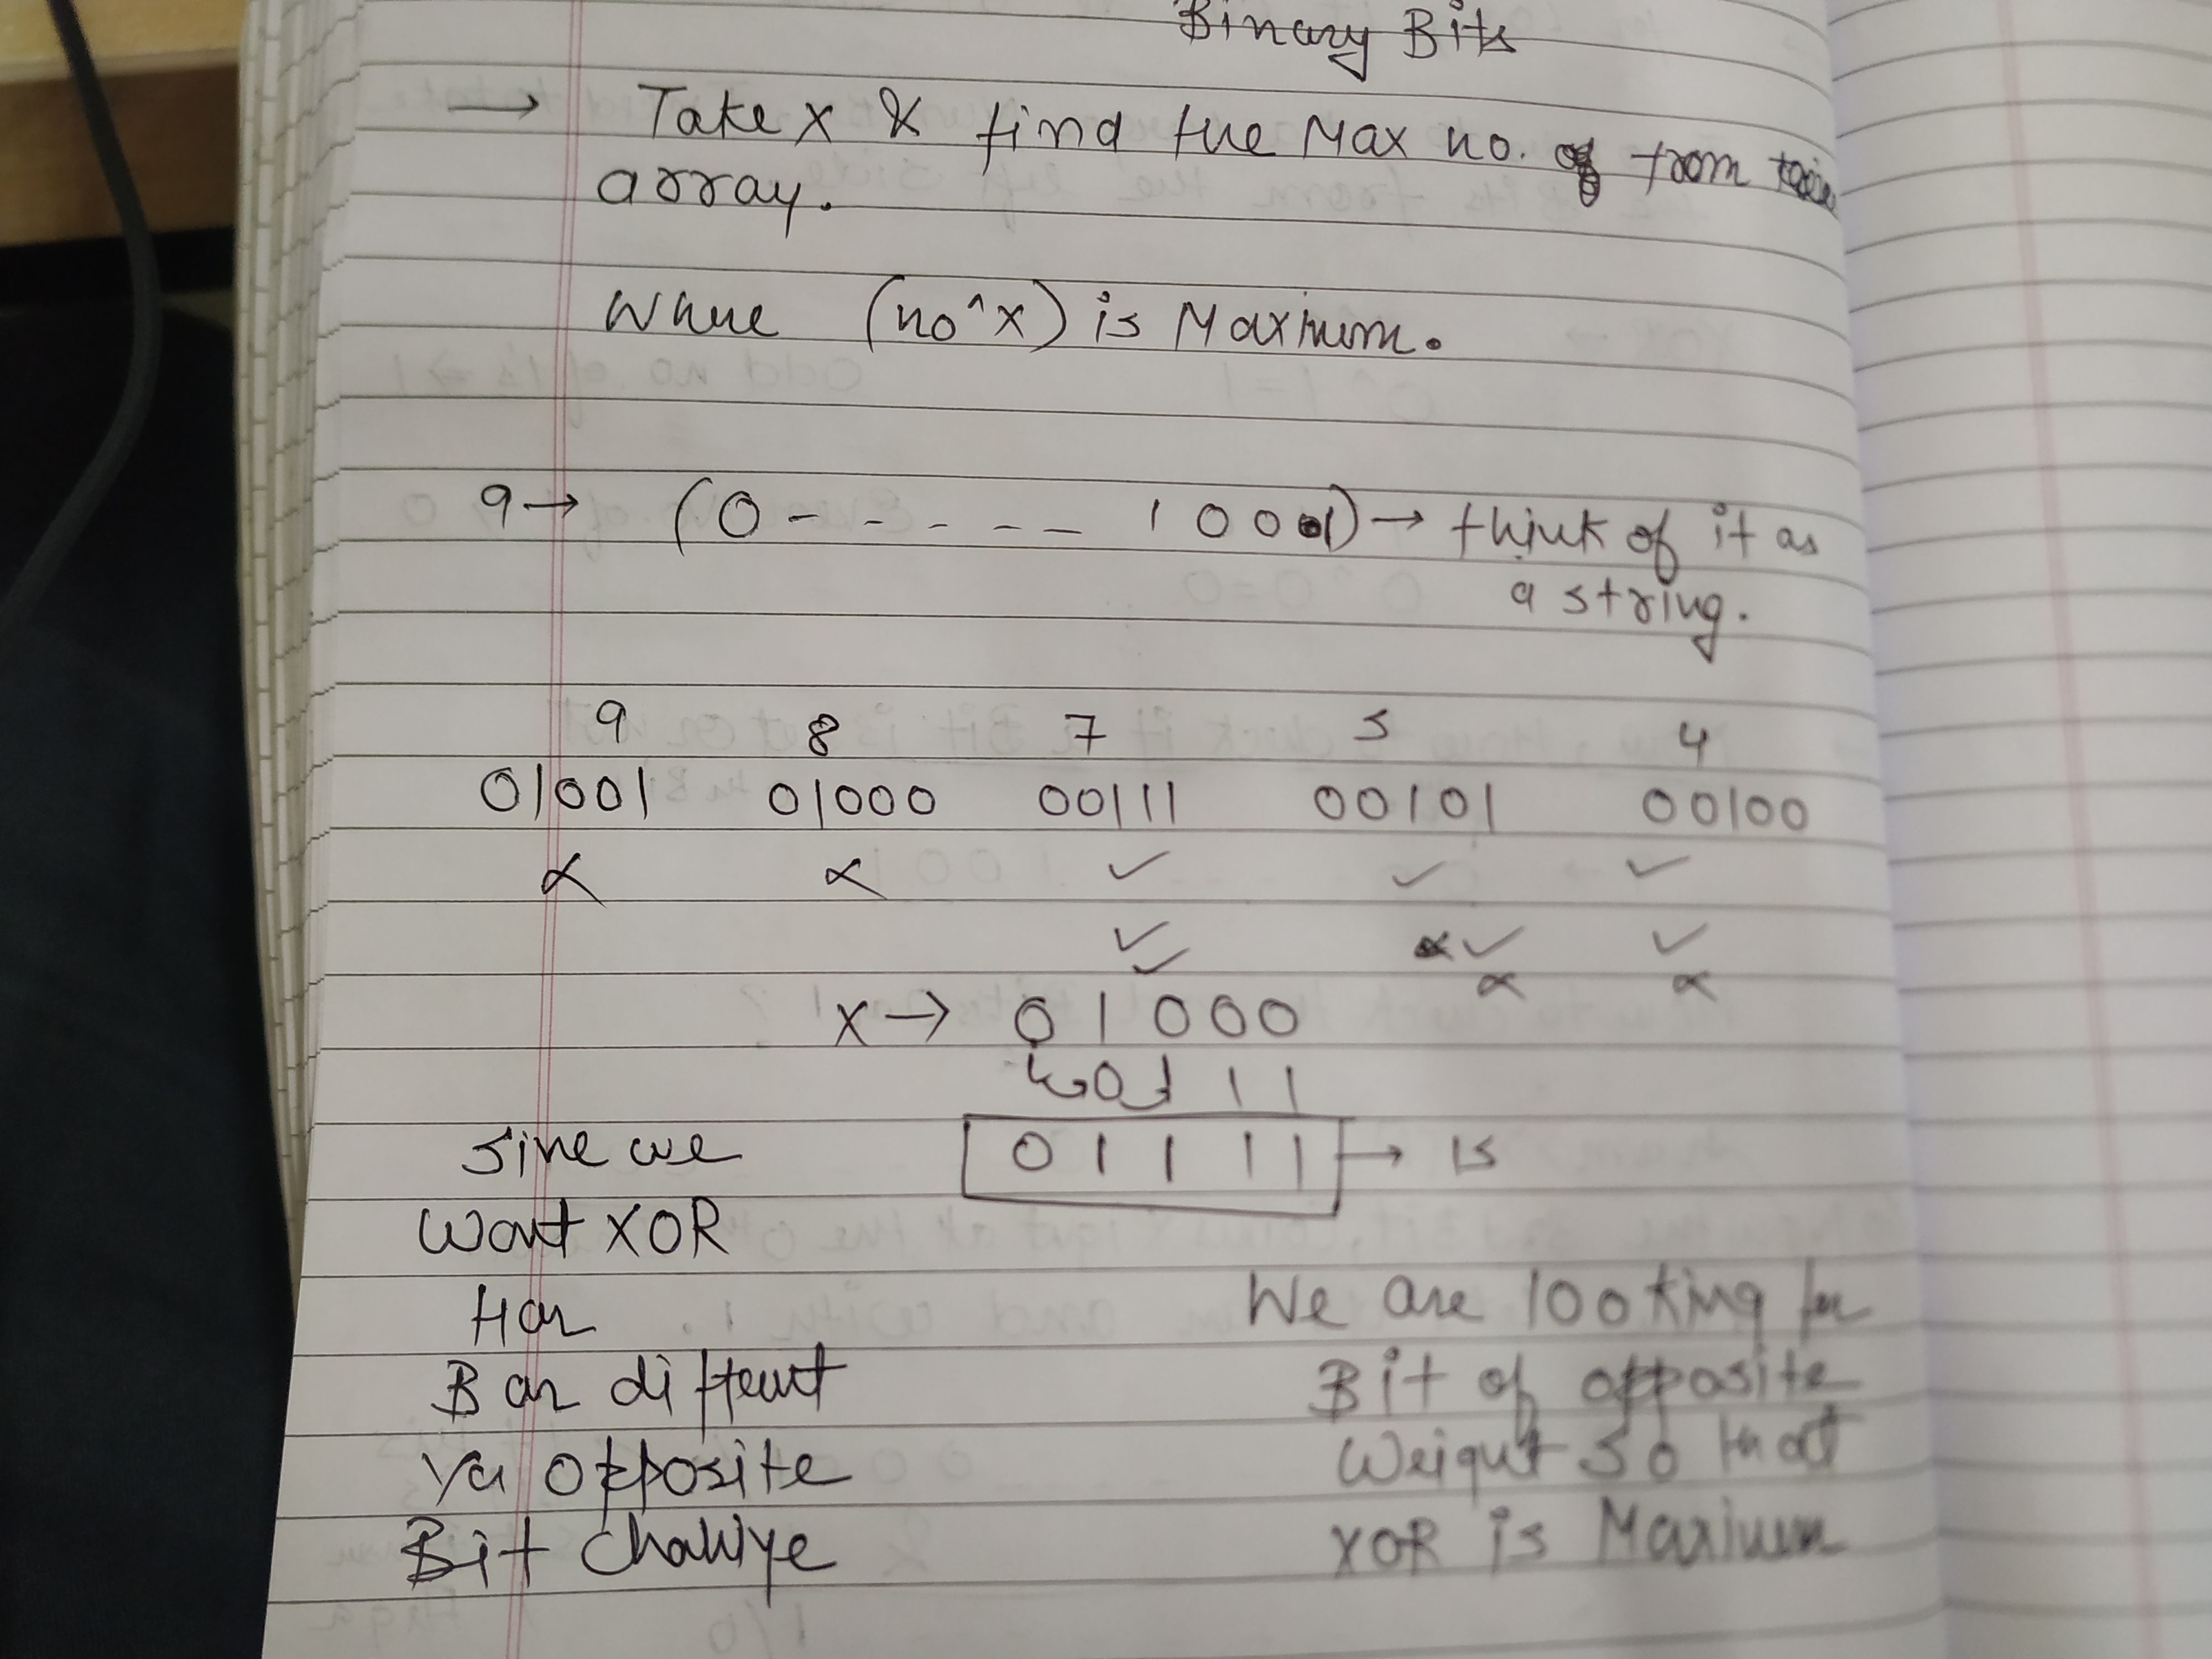 Binary Bits
→ Take x & find the Max no. from
array.
Where (no^x) is Maximum.
9 → (0 - - - - - 1 0 0 1) → think of it as
a string.
9 8 7 5 4
01001 01000 00111 00101 00100
x → 0 1 0 0 0
0 0 1 1 1
0 1 1 1 1 → 15
Sine we
Want XOR
Har
Bar different
Ya opposite
Bit Chahiye
We are looking for
Bit of opposite
Weight so that
XOR is Maxium